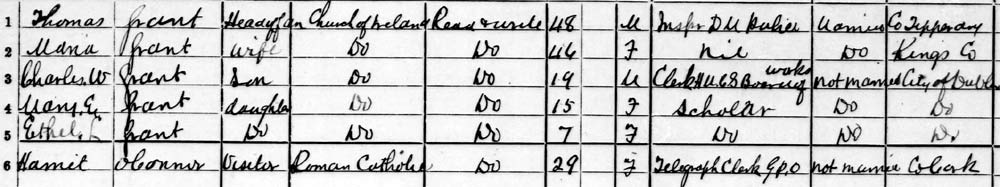 1 Thomas Grant Head of fam Church of Ireland Read & write 48 M Inspr D M Police Married Co Tipperary
2 Maria Grant Wife Do Do 46 F Nil Do Kings Co
3 Charles W Grant Son Do Do 19 M Clerk works not married City of Dublin
4 Grant daughter Do Do 15 F Scholar Do Do
5 Ethel Grant Do Do Do 7 F Do Do Do
6 Harriet O'Connor Visitor Roman Catholic Do 29 F Telegraph Clerk G.P.O not married Co Cork